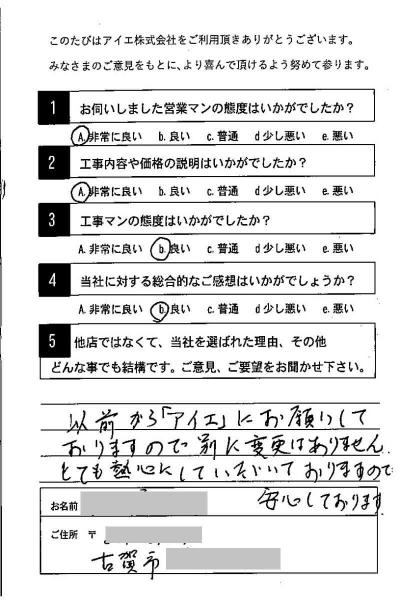 このたびはアイエ株式会社をご利用頂きありがとうございます。
みなさまのご意見をもとに、より喜んで頂けるよう努めて参ります。
1 お伺いしました営業マンの態度はいかがでしたか？
A.非常に良い b.良い c.普通 d少し悪い e.悪い
2 工事内容や価格の説明はいかがでしたか？
A.非常に良い b.良い c.普通 d少し悪い e.悪い
3 工事マンの態度はいかがでしたか？
A.非常に良い b.良い c.普通 d少し悪い e.悪い
4 当社に対する総合的なご感想はいかがでしょうか？
A.非常に良い b.良い c.普通 d少し悪い e.悪い
5 他店ではなくて、当社を選ばれた理由、その他
どんな事でも結構です。ご意見、ご要望をお聞かせ下さい。
以前から「アイエ」にお願いして
おりますので別に変更はありません。
とても熱心にしていただいておりますので
安心しております。
お名前
ご住所 〒
古賀市